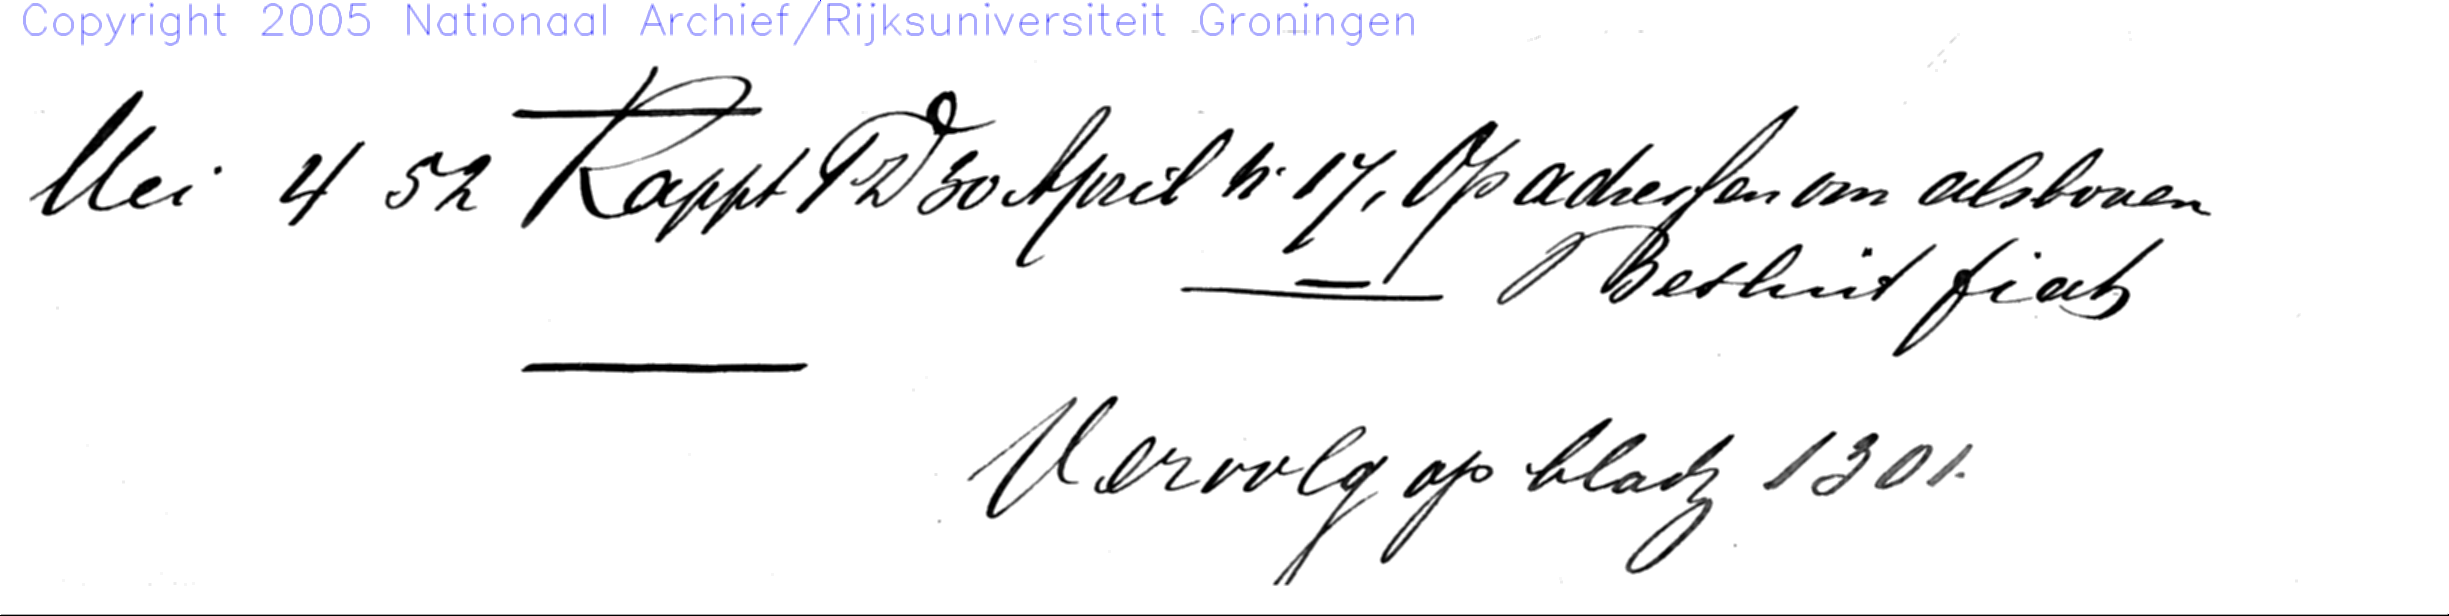 Copyright 2005 Nationaal Archief/Rijksuniversiteit Groningen
Mei 4 52 Rappt 30 April n. 17, Op adressen om alsboven
Besluit fiat
Vervolg op bladz 1301.